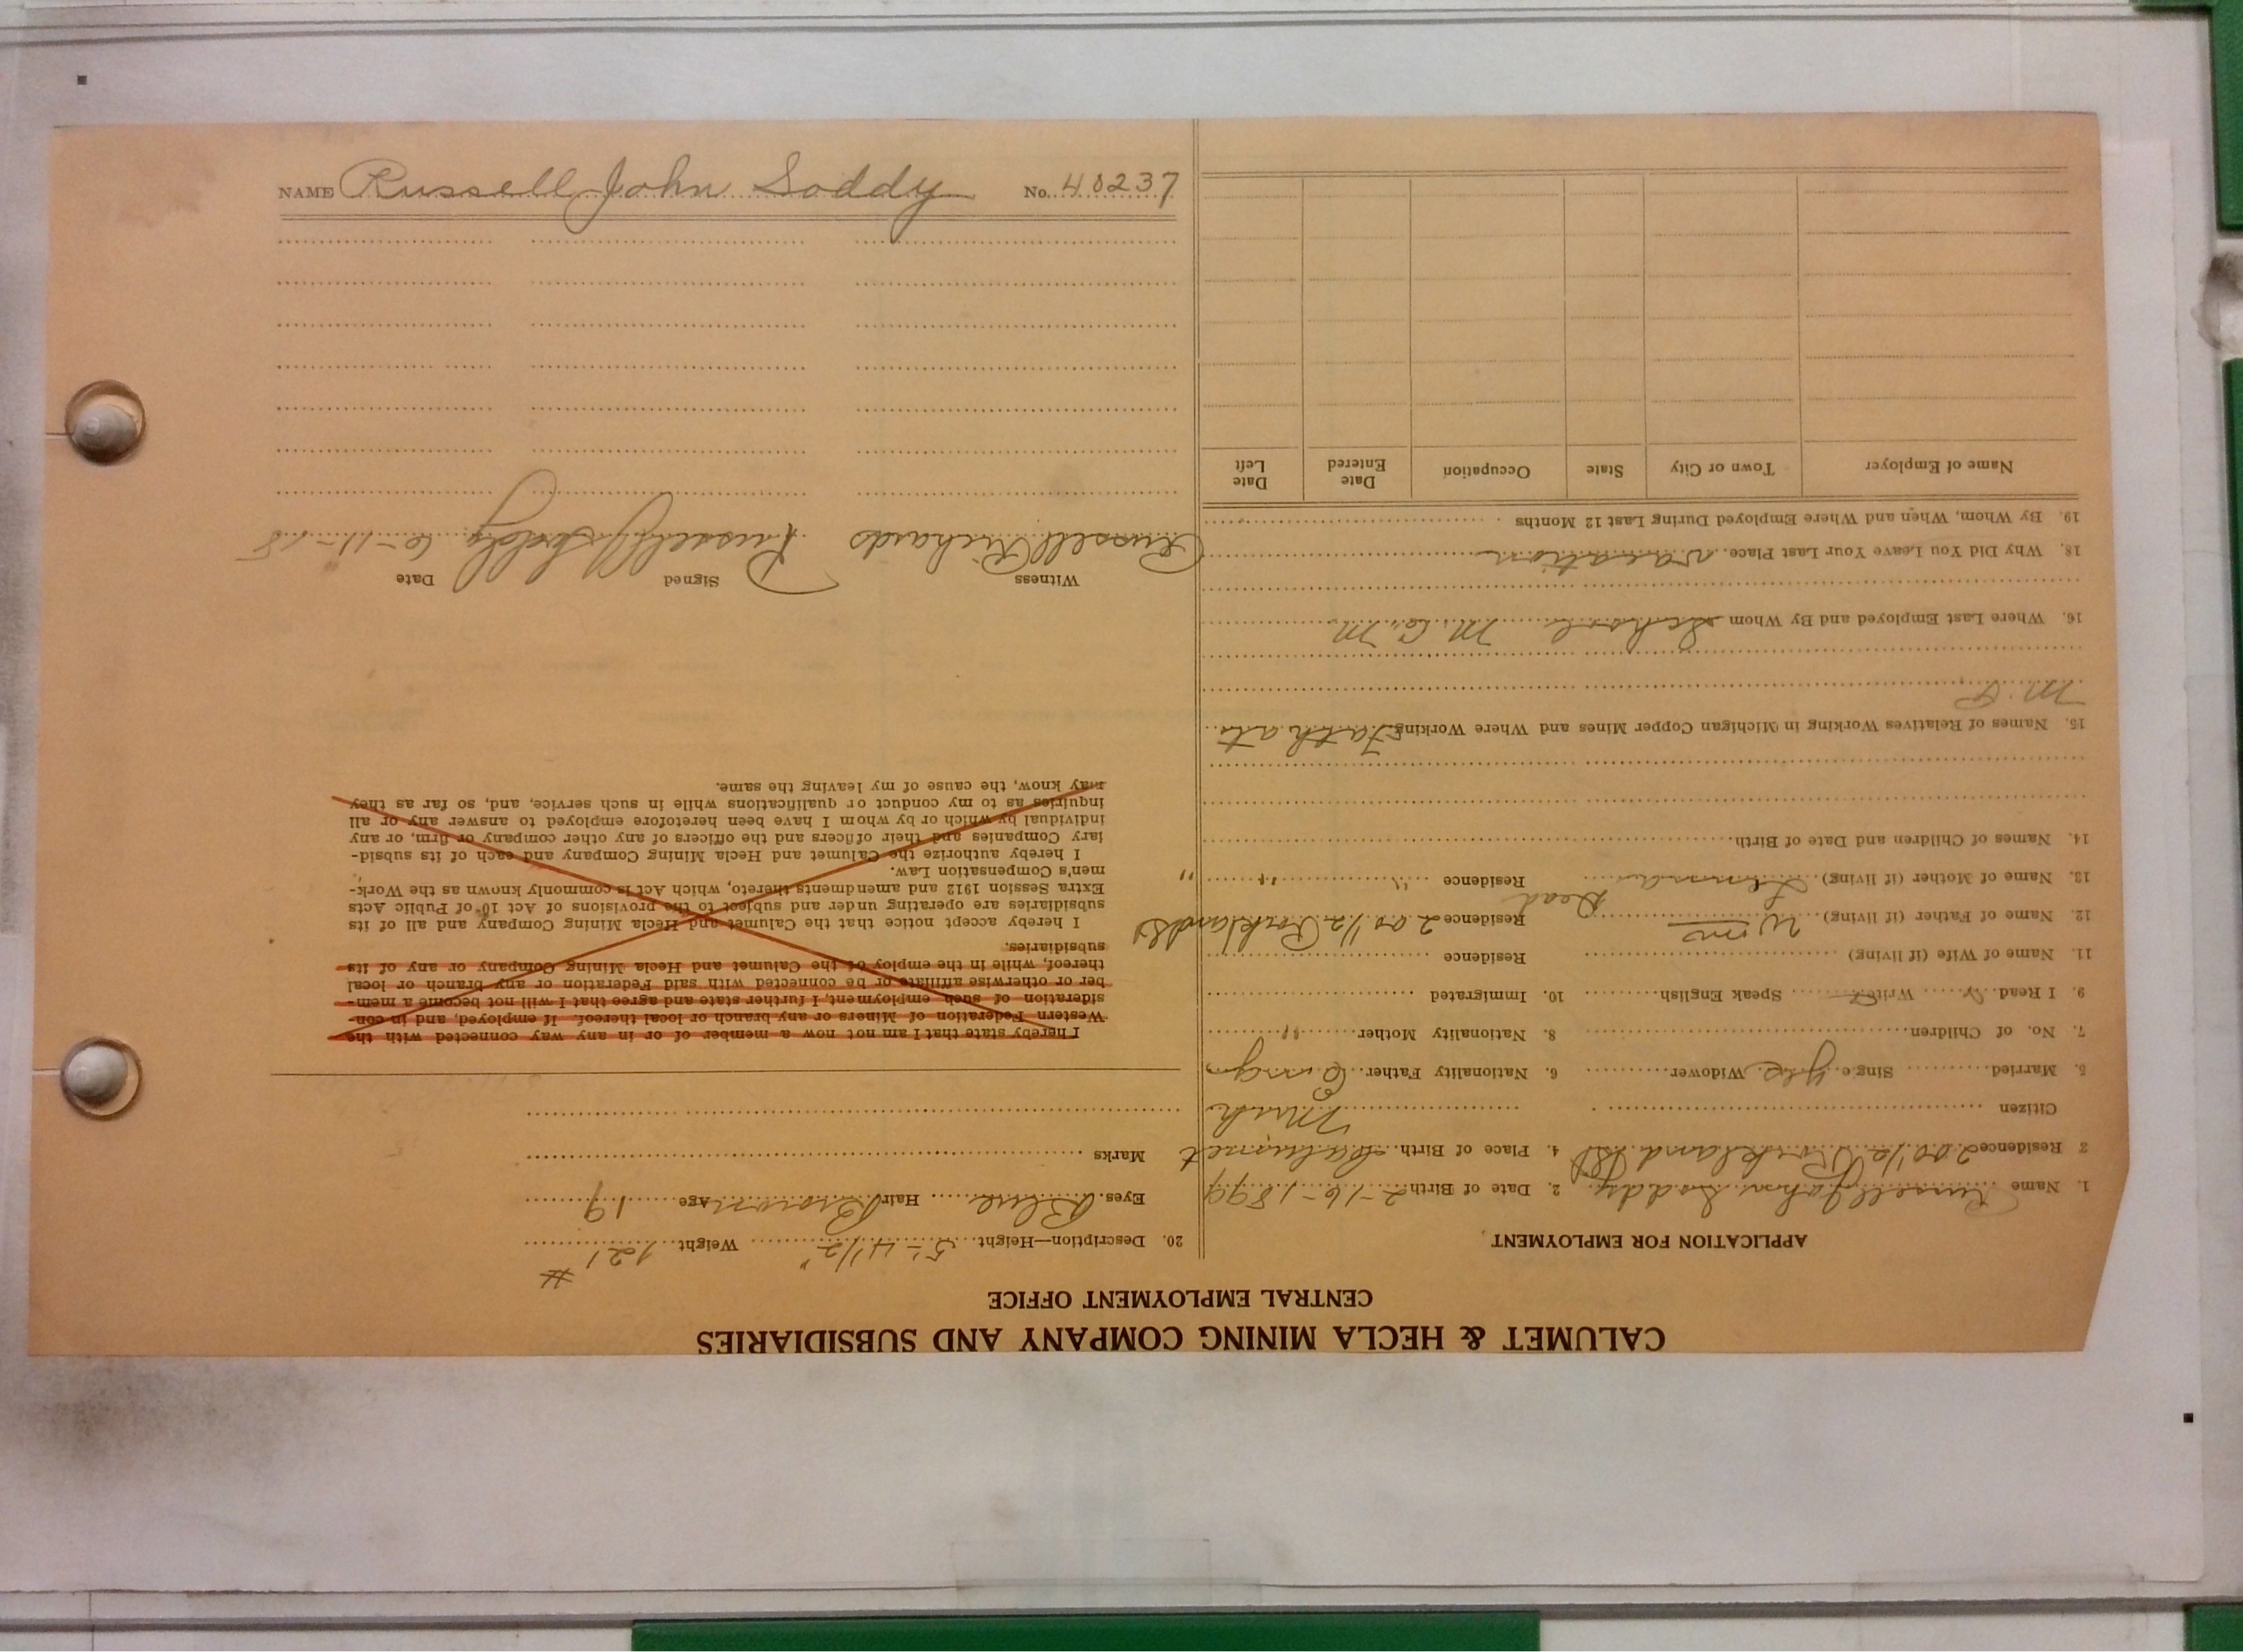 NAME Russell John Soddy No. 40237
CALUMET & HECLA MINING COMPANY AND SUBSIDIARIES
CENTRAL EMPLOYMENT OFFICE
APPLICATION FOR EMPLOYMENT
1. Name Russell John Soddy 2. Date of Birth 2-16-1899
3 Residence 200 1/2 Rockland St 4. Place of Birth Calumet
Mich
Citizen
5. Married Single yes Widower 6. Nationality Father
7. No. of Children 8. Nationality Mother "
9. I Read Write Speak English 10. Immigrated
11. Name of Wife (if living) Residence
12. Name of Father (if living) Wm Residence 200 1/2 Rockland St
Dead
13. Name of Mother (if living) Residence " " "
14. Names of Children and Date of Birth
15. Names of Relatives Working in Michigan Copper Mines and Where Working Fath at
M. F.
16. Where Last Employed and By Whom School M. C. M.
18. Why Did You Leave Your Last Place vacation
19. By Whom, When and Where Employed During Last 12 Months
Name of Employer Town or City State Occupation Date Entered Date Left
20. Description—Height 5'-4 1/2" Weight 121 #
Eyes Blue Hair Brown Age 19
Marks
I hereby state that I am not now a member of or in any way connected with the
Western Federation of Miners or any branch or local thereof. If employed, and in con-
sideration of such employment, I further state and agree that I will not become a mem-
ber or otherwise affiliate or be connected with said Federation or any branch or local
thereof, while in the employ of the Calumet and Hecla Mining Company or any of its
subsidiaries.
I hereby accept notice that the Calumet and Hecla Mining Company and all of its
subsidiaries are operating under and subject to the provisions of Act 10 of Public Acts
Extra Session 1912 and amendments thereto, which Act is commonly known as the Work-
men's Compensation Law.
I hereby authorize the Calumet and Hecla Mining Company and each of its subsid-
iary Companies and their officers and the officers of any other company or firm, or any
individual by which or by whom I have been heretofore employed to answer any or all
inquiries as to my conduct or qualifications while in such service, and, so far as they
may know, the cause of my leaving the same.
Witness Signed Date
Russell Richards Russell J Soddy 6-11-18